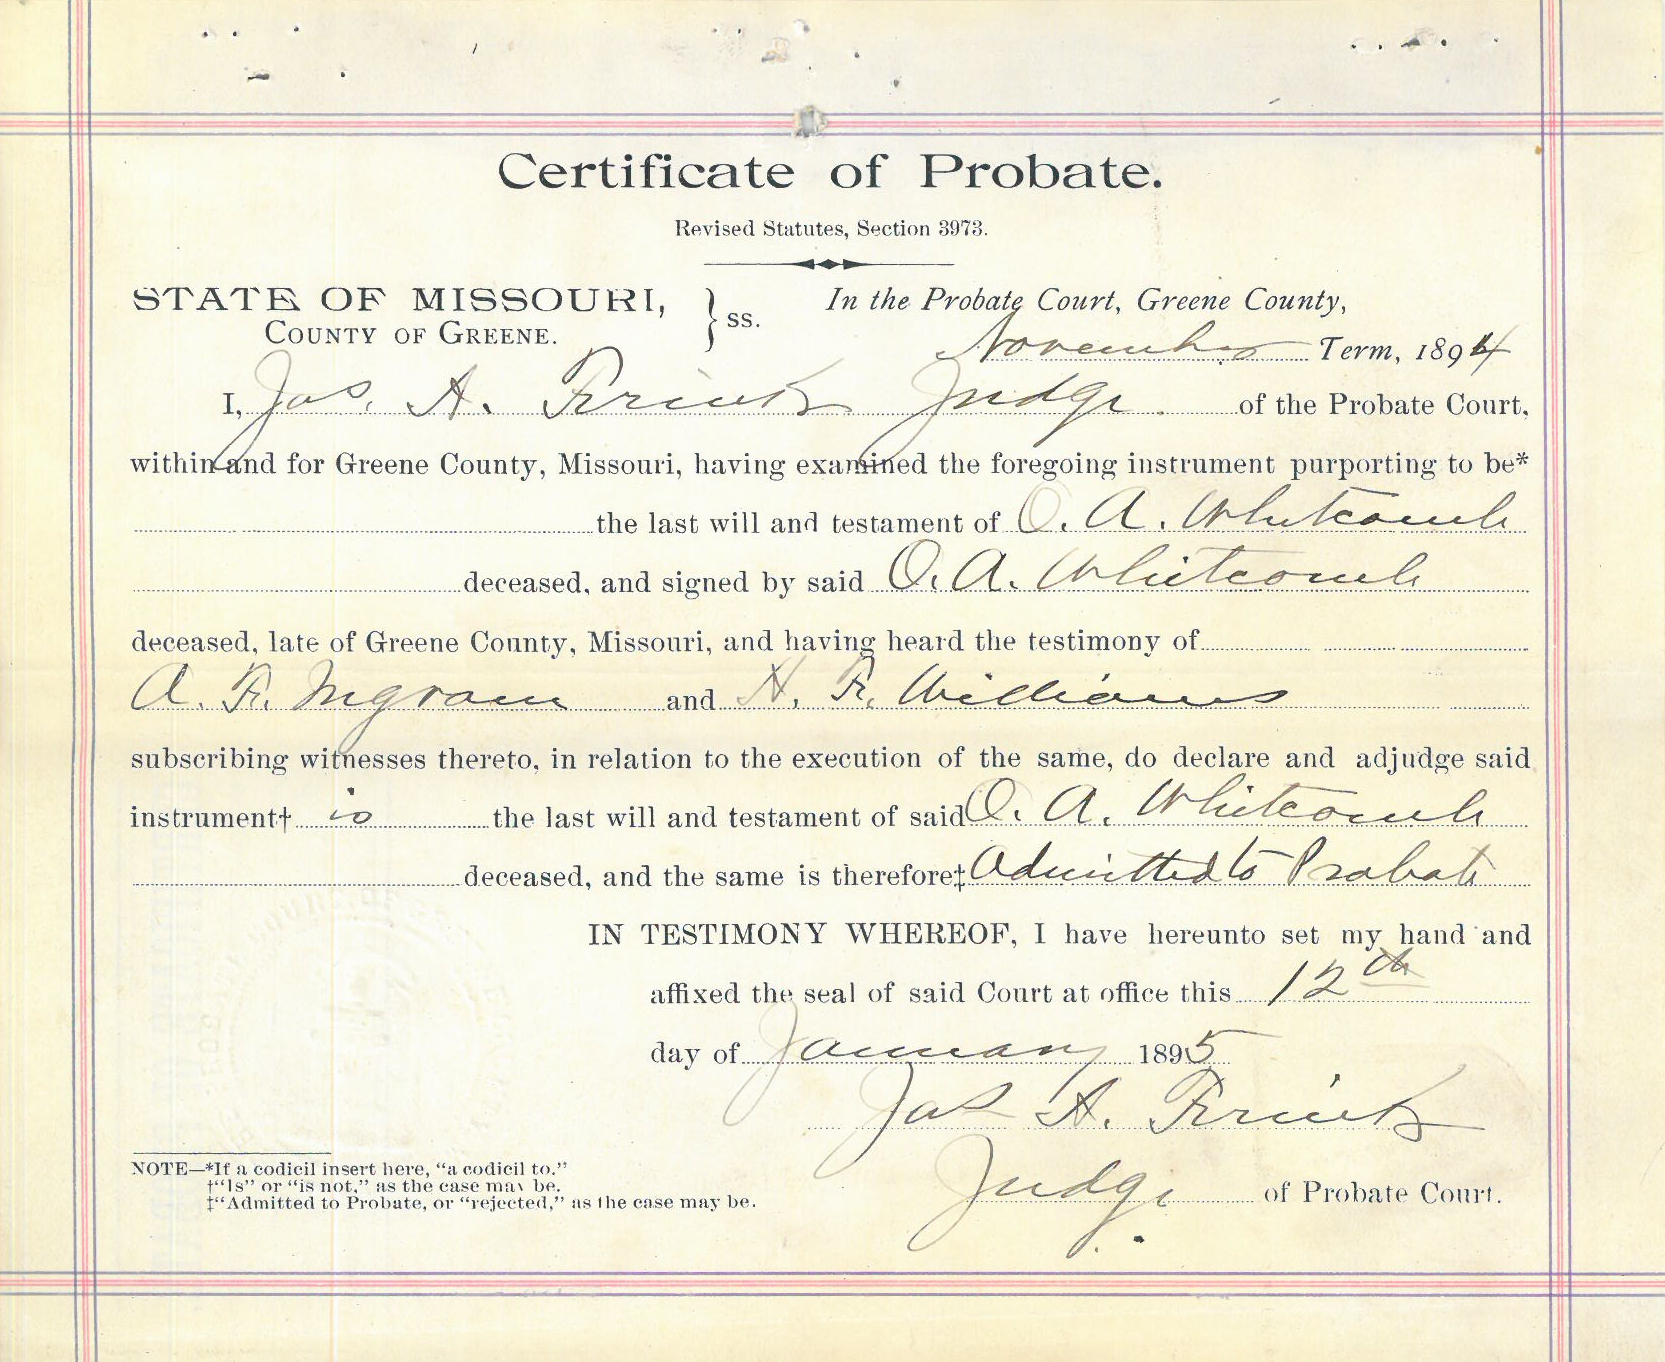 Certificate of Probate.
Revised Statutes, Section 3973.
STATE OF MISSOURI, } ss. In the Probate Court, Greene County,
COUNTY OF GREENE. November Term, 1894
I, Jas. A. Frink Judge of the Probate Court,
within and for Greene County, Missouri, having examined the foregoing instrument purporting to be*
the last will and testament of O. A. Whitcomb
deceased, and signed by said O. A. Whitcomb
deceased, late of Greene County, Missouri, and having heard the testimony of
A. F. Ingram and H. F. Williams
subscribing witnesses thereto, in relation to the execution of the same, do declare and adjudge said
instrument† is the last will and testament of said O. A. Whitcomb
deceased, and the same is therefore‡ Admitted to Probate
IN TESTIMONY WHEREOF, I have hereunto set my hand and
affixed the seal of said Court at office this 12th
day of January 1895
Jas A. Frink
Judge of Probate Court.
NOTE—*If a codicil insert here, "a codicil to."
†"Is" or "is not," as the case may be.
‡"Admitted to Probate, or "rejected," as the case may be.